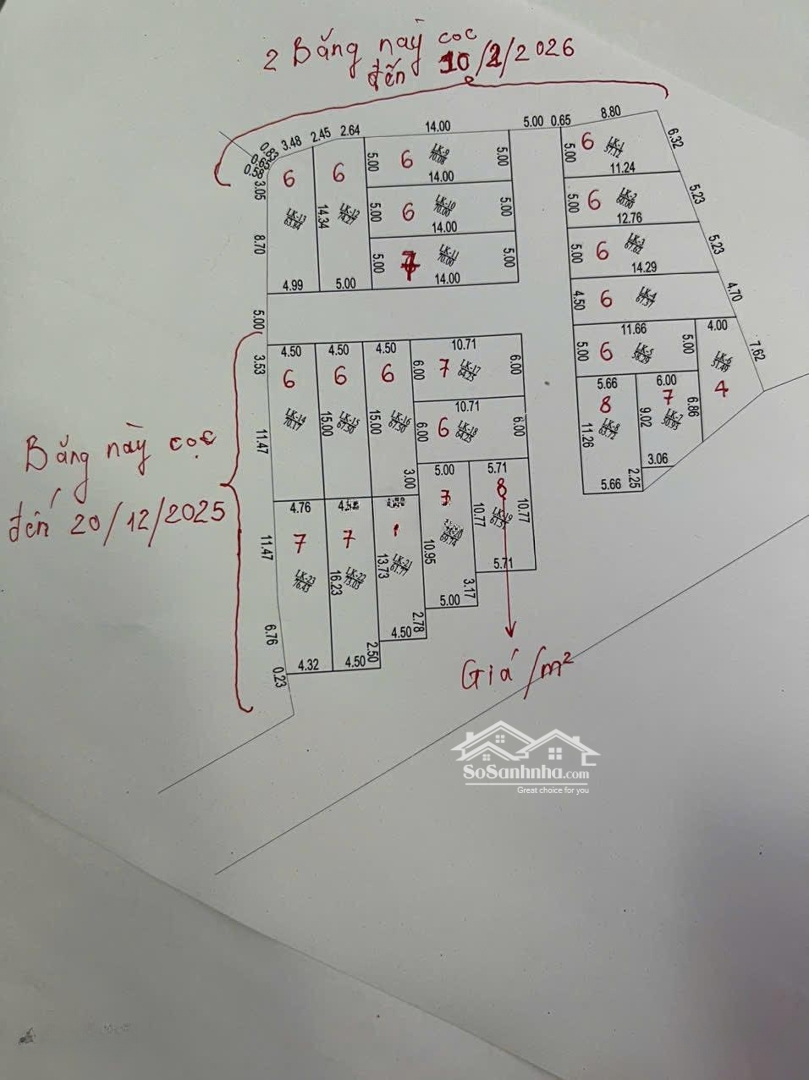 2 Băng này cọc
đến 10/2/2026
0.83 3.48 2.45 2.64 14.00 5.00 0.65 8.80
0.65
0.58
3.05 6 6 5.00 6 LK-9 5.00 5.00 6 LK-1 6.32
70.00
14.00 11.24
LK-13 14.34 LK-12 5.00 6 LK-10 5.00 5.00 6 LK-2 5.23
63.64 70.00 60.00
8.70 14.00 12.76
5.00 7 LK-11 5.00 5.00 6 LK-3 5.23
70.00
4.99 5.00 14.00 14.29
5.00 4.50 6 LK-4 4.70
67.37
11.66 4.00
3.53 4.50 4.50 4.50 10.71 5.00 6 LK-5 5.00 LK-6 7.62
58.29
6 6 6 6.00 7 LK-17 6.00 5.66 6.00 4
64.25
10.71 8 7 6.86
11.47 LK-14 15.00 LK-15 15.00 LK-16 6.00 6 LK-18 6.00 11.26 LK-8 9.02 LK-7
70.17 67.50 67.50 64.25 63.73 50.95
Băng này cọc
3.00 5.00 5.71 3.06
5.66 2.25
đến 20/12/2025
4.76 7 8
11.47 7 7 10.95 10.77 LK-19 10.77
LK-23 16.23 LK-22 13.73 LK-21 69.74 5.71
76.43 75.03 61.77
6.76 3.17
5.00
2.78
4.50
0.23 4.32 4.50 2.50
Giá/m²
SoSanhnha.com
Great choice for you